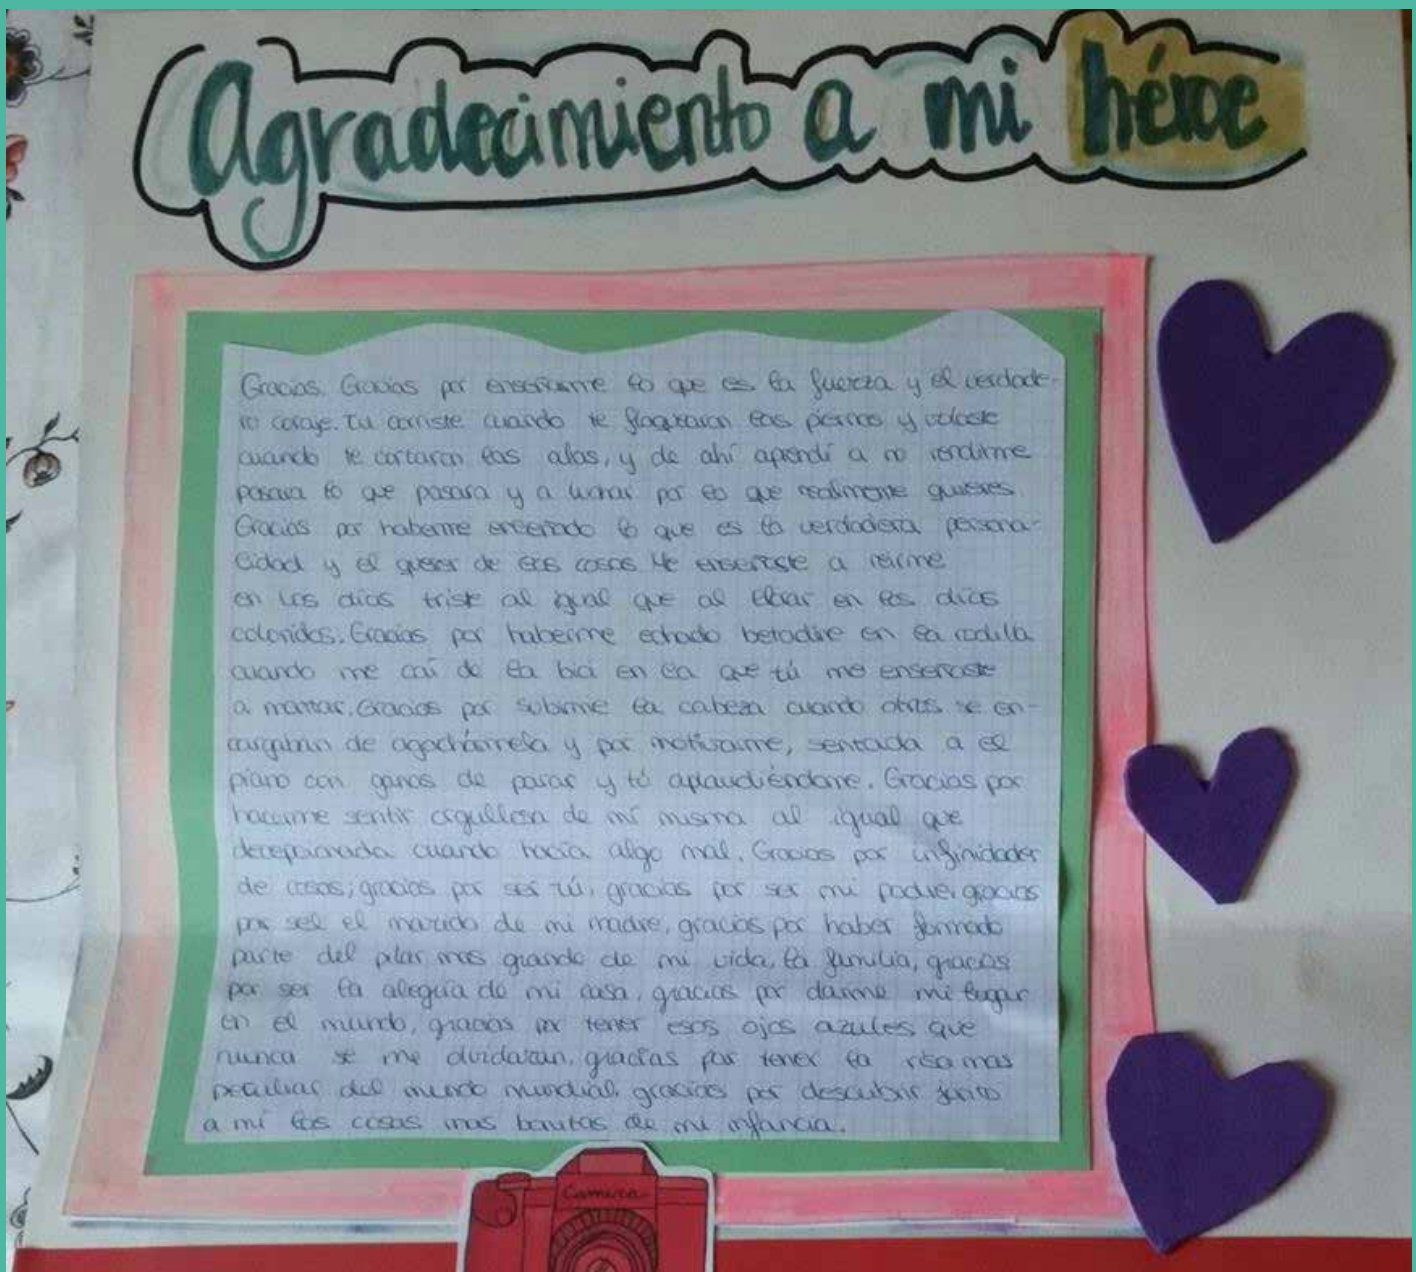 Agradecimiento a mi héroe
Gracias. Gracias por enseñarme lo que es la fuerza y el verdade-
ro coraje. Tu corriste cuando te flaqearon las piernas y volaste
cuando te cortaron las alas, y de ahí aprendí a no rendirme
pasara lo que pasara y a luchar por lo que realmente quieres.
Gracias por haberme enseñado lo que es la verdadera persona-
lidad y el querer de las cosas. Me enseñaste a reirme
en los dias triste al igual que al llorar en los dias
coloridos. Gracias por haberme echado betadine en la rodilla
cuando me caí de la bici en la que tú me enseñaste
a montar. Gracias por subirme la cabeza cuando otros se en-
cargaban de agachármela y por motivarme, sentada a el
piano con ganas de parar y tú aplaudiéndome. Gracias por
hacerme sentir orgullosa de mí misma al igual que
decepcionada cuando hacía algo mal. Gracias por infinidades
de cosas; gracias por ser tú, gracias por ser mi padre, gracias
por ser el marido de mi madre, gracias por haber formado
parte del pilar mas grande de mi vida, la familia, gracias
por ser la alegría de mi casa, gracias por darme mi lugar
en el mundo, gracias por tener esos ojos azules que
nunca se me olvidaran, gracias por tener la risa mas
peculiar del mundo mundial, gracias por descubrir junto
a mi las cosas mas bonitas de mi infancia.
Camera